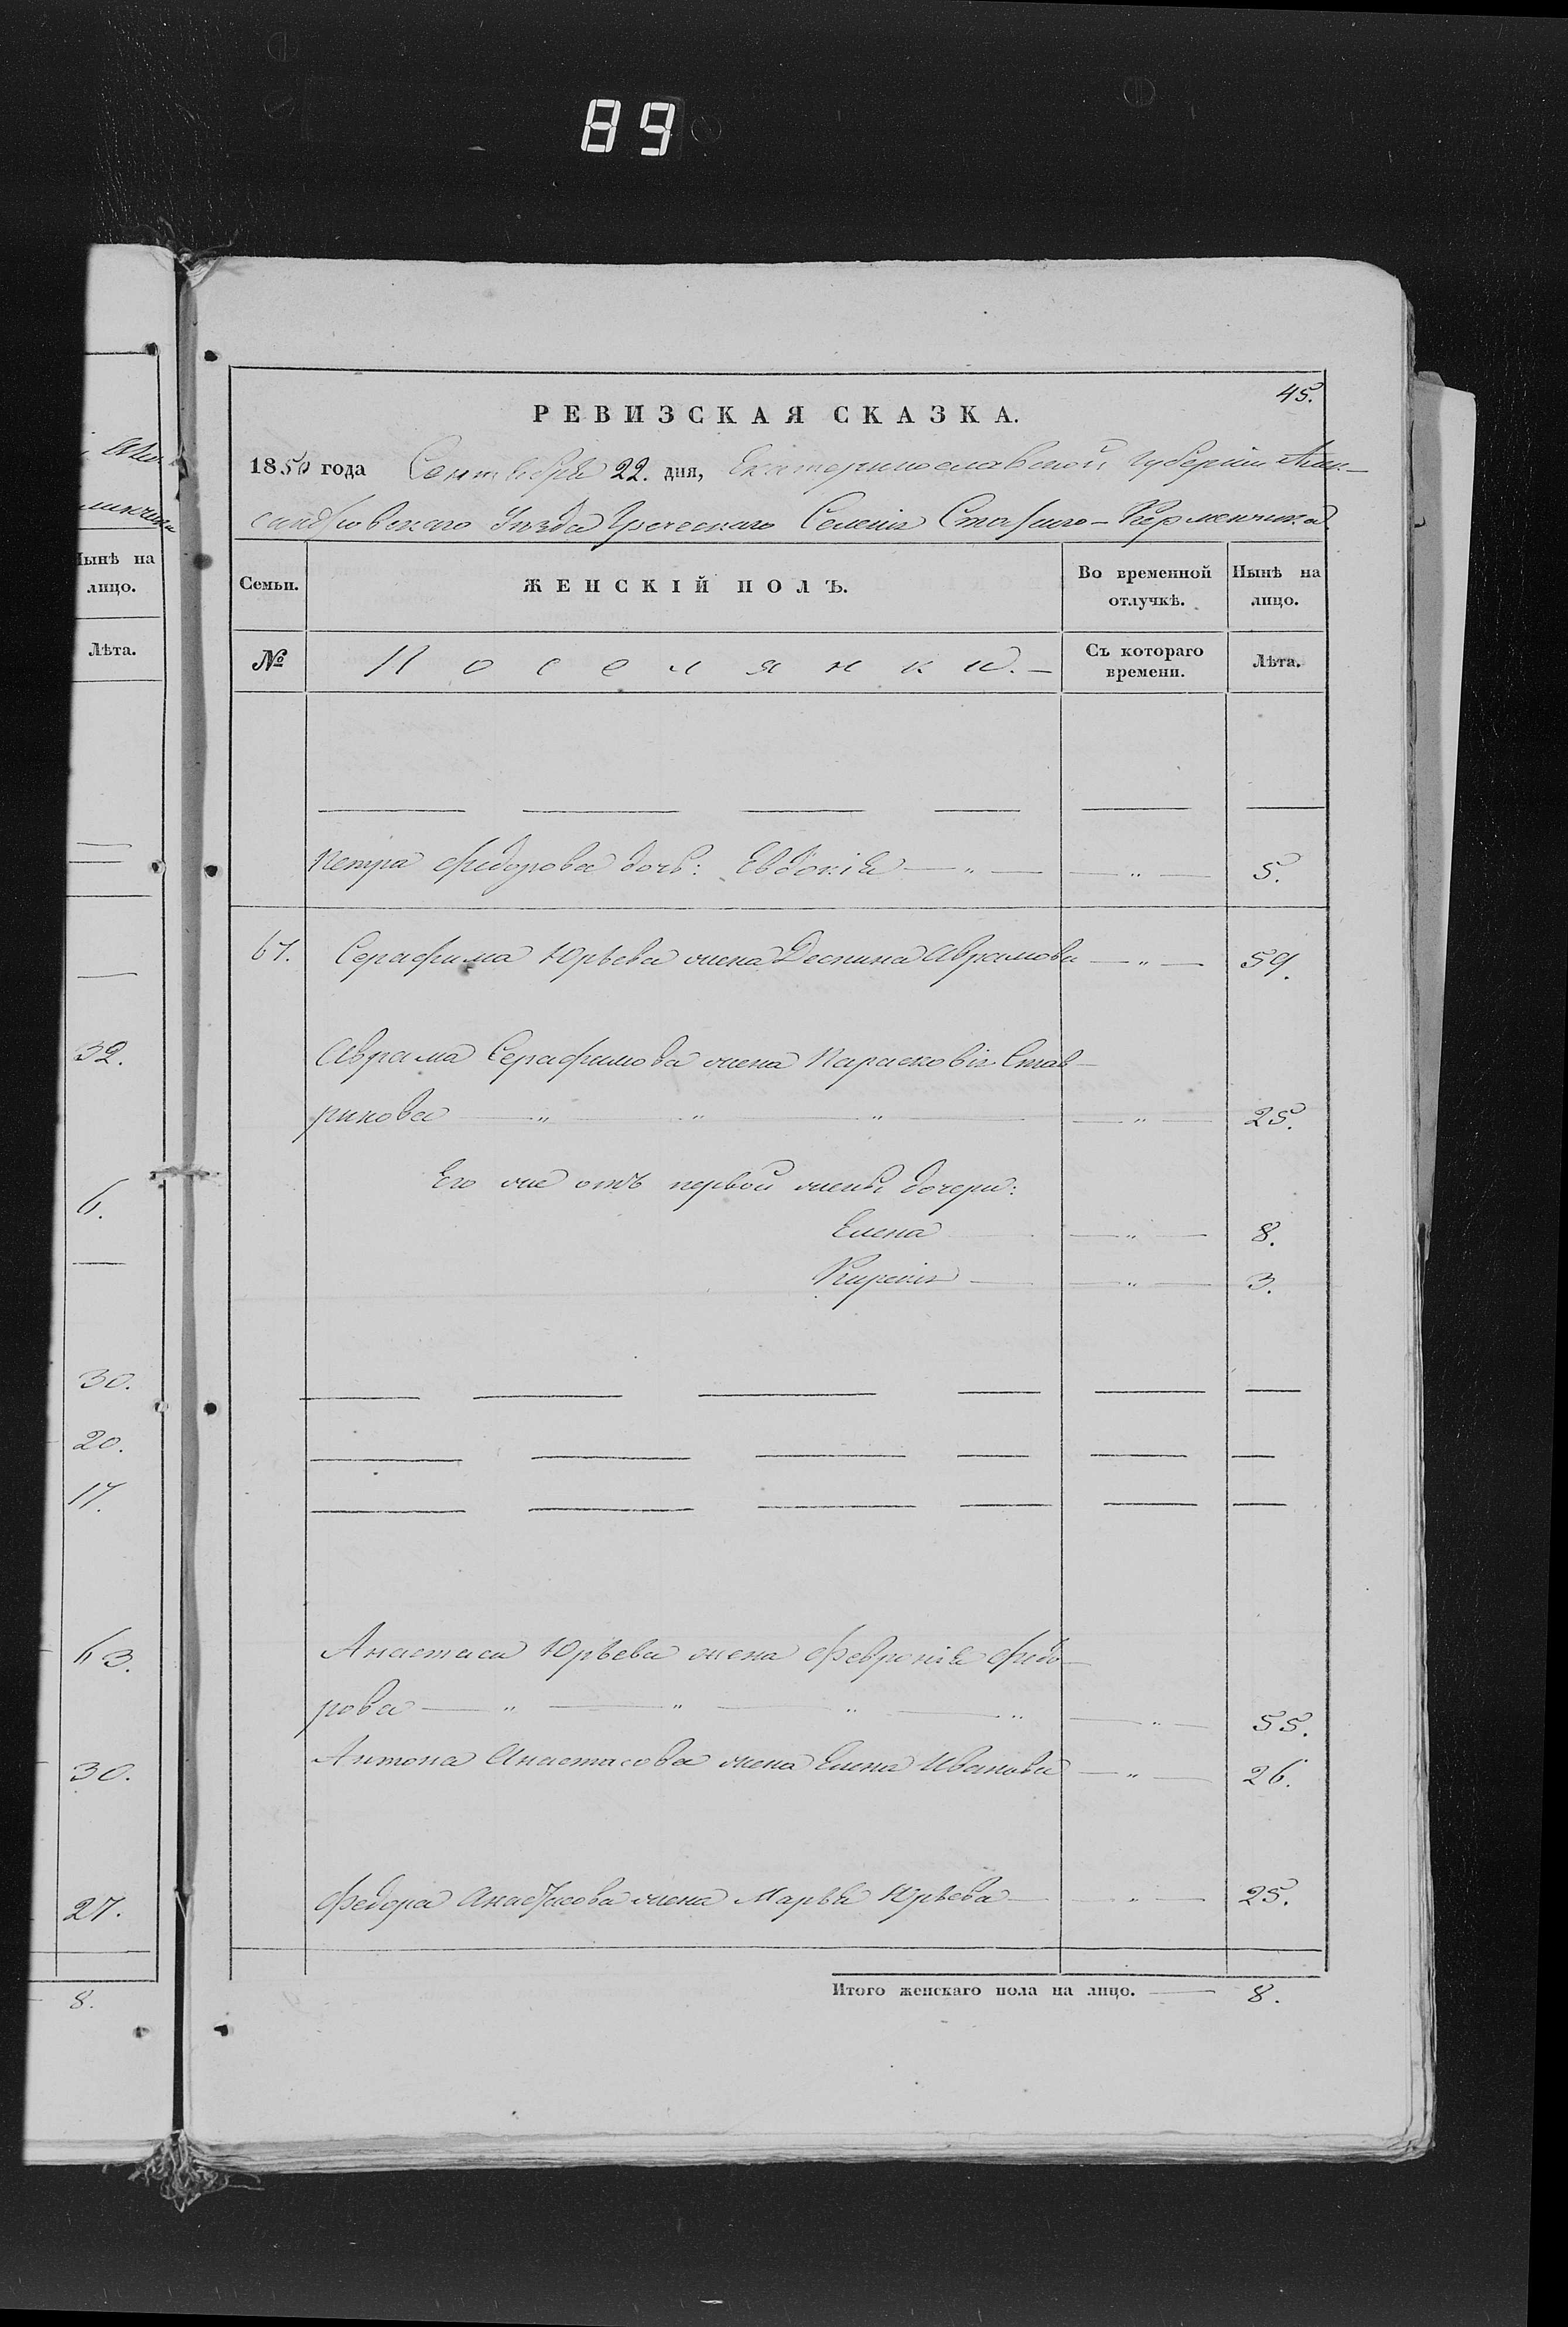 89
45.
РЕВИЗСКАЯ СКАЗКА.
1850 года Сентября 22. дня, Екатеринославской Губернiи Алек-
сандровскаго Уѣзда Греческаго Селенiя Стараго-Керменчика
Семьи. ЖЕНСКІЙ ПОЛЪ. Во временной отлучкѣ. Нынѣ на лицо.
№ Поселянки. Съ котораго времени. Лѣта.
Петра Федорова дочь: Евдокiя — „ — — „ — 5.
67. Серафима Юрьева жена Деспина Аврамова — „ — 59.
Аврама Серафимова жена Парасковiя Став-
рикова — „ — „ — „ — — „ — 25.
Его же отъ первой жены дочери:
Елена — — „ — 8.
Кирекiя — — „ — 3.
Анастаса Юрьева жена Февронiя Федо-
рова — „ — „ — „ — „ — „ — 55.
Антона Анастасова жена Елена Иванова — „ — 26.
Федора Анастасова жена Марья Юрьева — — „ — 25.
Итого женскаго пола на лицо. — 8.
Нынѣ на
лицо.
Лѣта.
32.
6.
30.
20.
17.
63.
30.
27.
8.